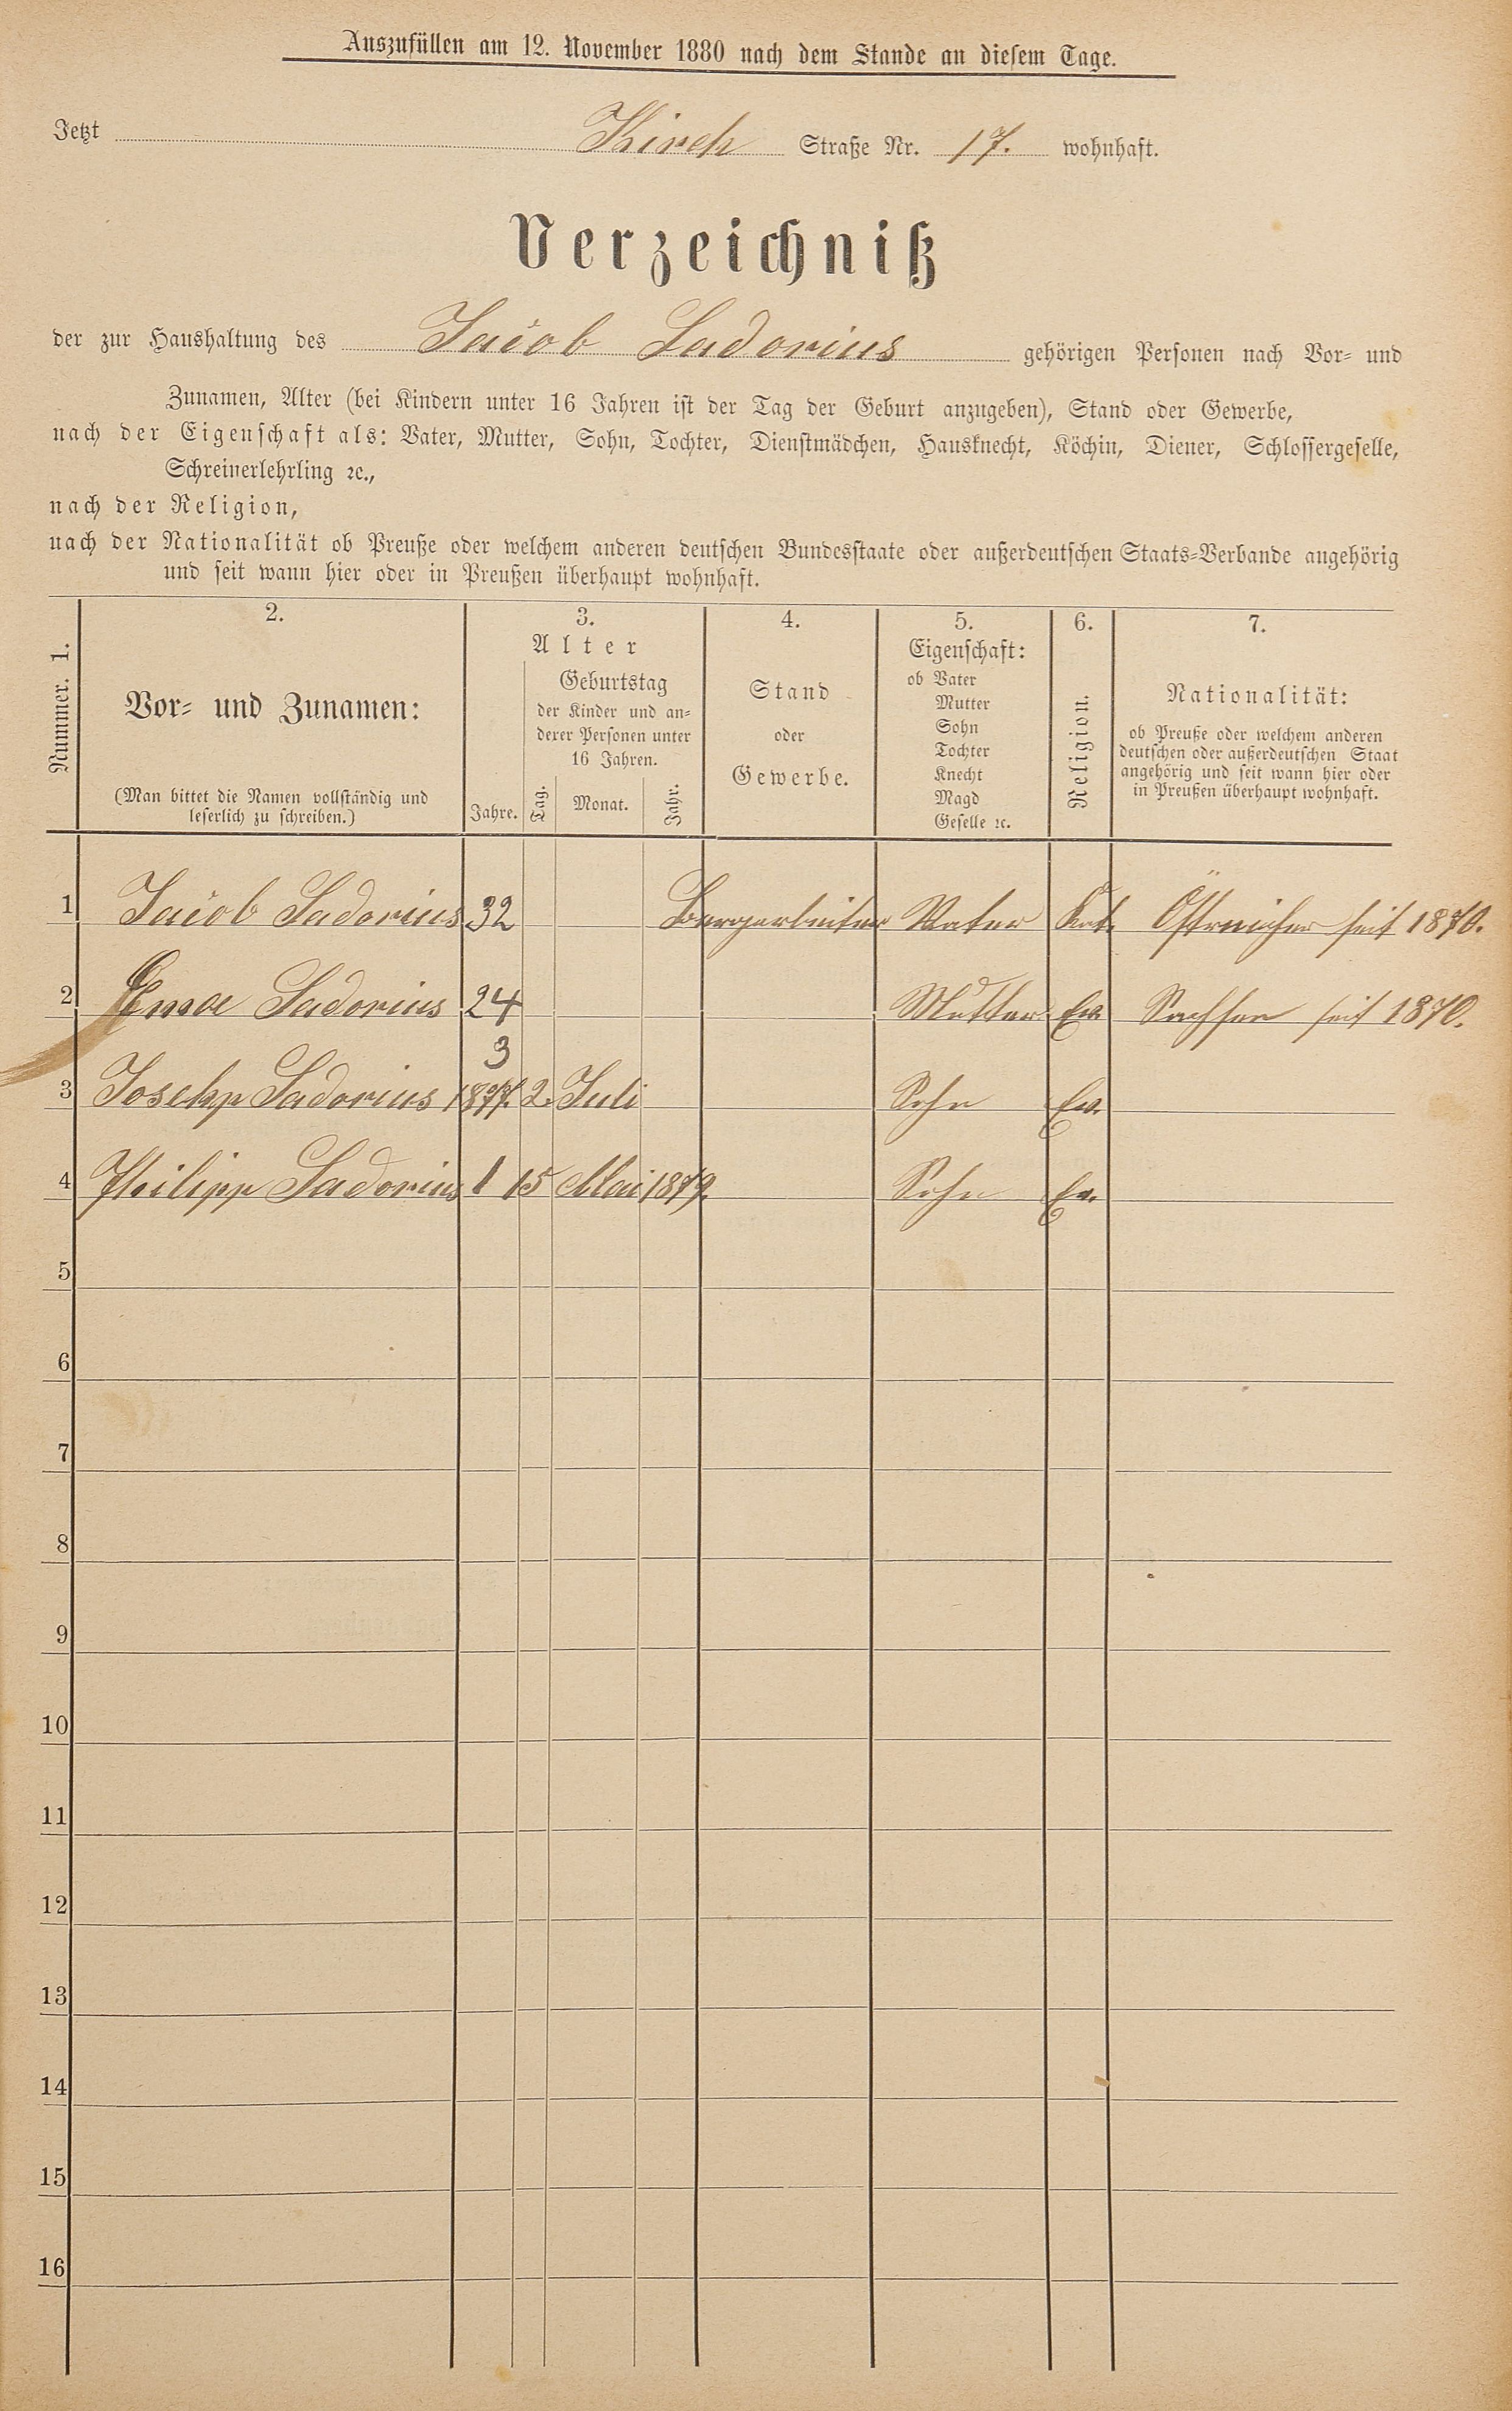 Auszufüllen am 12. November 1880 nach dem Stande an diesem Tage.
Jetzt Kirch Straße Nr. 17. wohnhaft.
Verzeichniß
der zur Haushaltung des Jacob Sadorius gehörigen Personen nach Vor- und
Zunamen, Alter (bei Kindern unter 16 Jahren ist der Tag der Geburt anzugeben), Stand oder Gewerbe,
nach der Eigenschaft als: Vater, Mutter, Sohn, Tochter, Dienstmädchen, Hausknecht, Köchin, Diener, Schlossergeselle,
Schreinerlehrling ꝛc.,
nach der Religion,
nach der Nationalität ob Preuße oder welchem anderen deutschen Bundesstaate oder außerdeutschen Staats-Verbande angehörig
und seit wann hier oder in Preußen überhaupt wohnhaft.
Nummer. 1.
2.
Vor- und Zunamen:
(Man bittet die Namen vollständig und
leserlich zu schreiben.)
3.
Alter
Jahre.
Geburtstag
der Kinder und an-
derer Personen unter
16 Jahren.
Tag.
Monat.
Jahr.
4.
Stand
oder
Gewerbe.
5.
Eigenschaft:
ob Vater
Mutter
Sohn
Tochter
Knecht
Magd
Geselle ꝛc.
6.
Religion.
7.
Nationalität:
ob Preuße oder welchem anderen
deutschen oder außerdeutschen Staat
angehörig und seit wann hier oder
in Preußen überhaupt wohnhaft.
1 Jacob Sadorius 32 Bergarbeiter Vater Kat. Östreicher seit 1870.
2 Sadorius 24 Mutter Ev. Sachsen seit 1870.
3
3 Josehp Sadorius 1877. 2. Juli Sohn Ev.
4 Philipp Sadorius 1 15 Mai 1879. Sohn Ev.
5
6
7
8
9
10
11
12
13
14
15
16